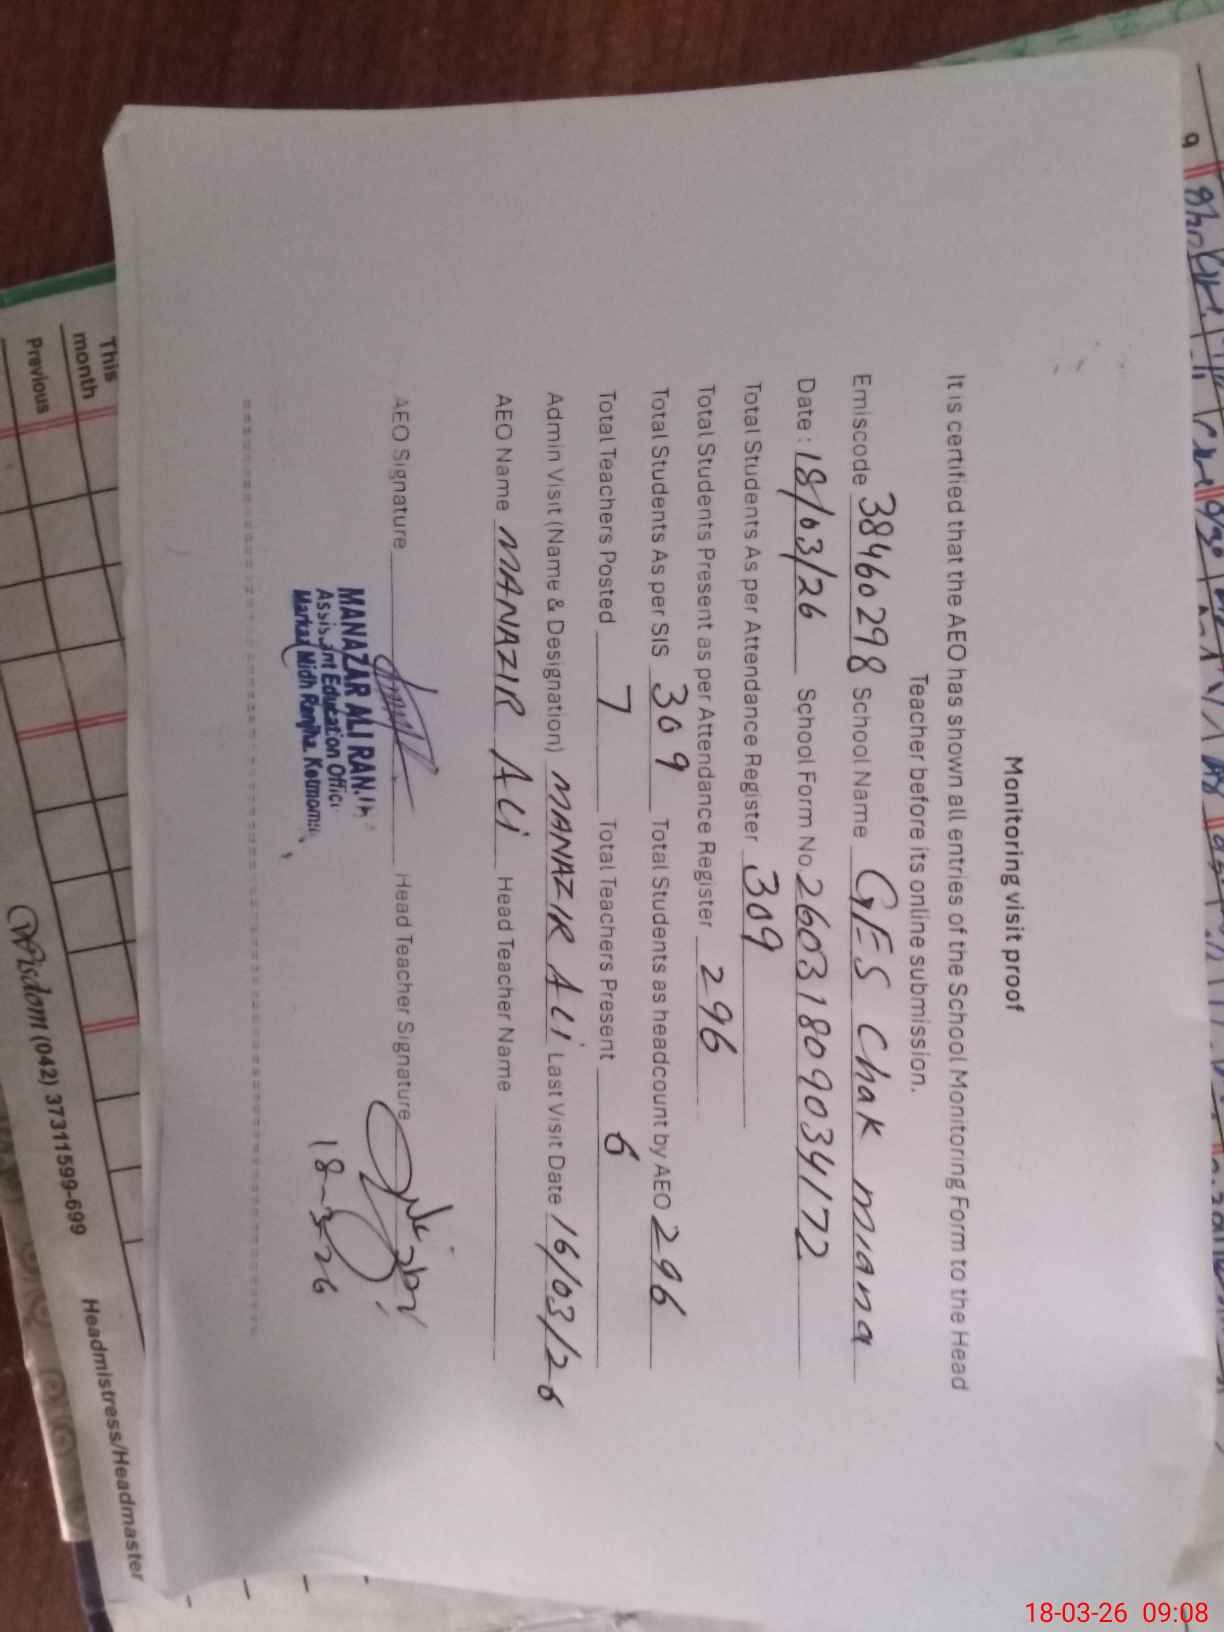 Monitoring visit proof
It is certified that the AEO has shown all entries of the School Monitoring Form to the Head
Teacher before its online submission.
Emiscode 38460298 School Name GES Chak Miana
Date : 18/03/26 School Form No. 26031809034172
Total Students As per Attendance Register 309
Total Students Present as per Attendance Register 296
Total Students As per SIS 309 Total Students as headcount by AEO 296
Total Teachers Posted 7 Total Teachers Present 6
Admin Visit (Name & Designation) MANAZIR ALI Last Visit Date 16/03/26
AEO Name MANAZIR ALI Head Teacher Name
AEO Signature Head Teacher Signature
18-3-26
MANAZAR ALI
Assistant Education
Markaz Midh Ranjha
This
month
Previous
Wisdom (042) 37311599-699
Headmistress/Headmaster
9
18-03-26 09:08